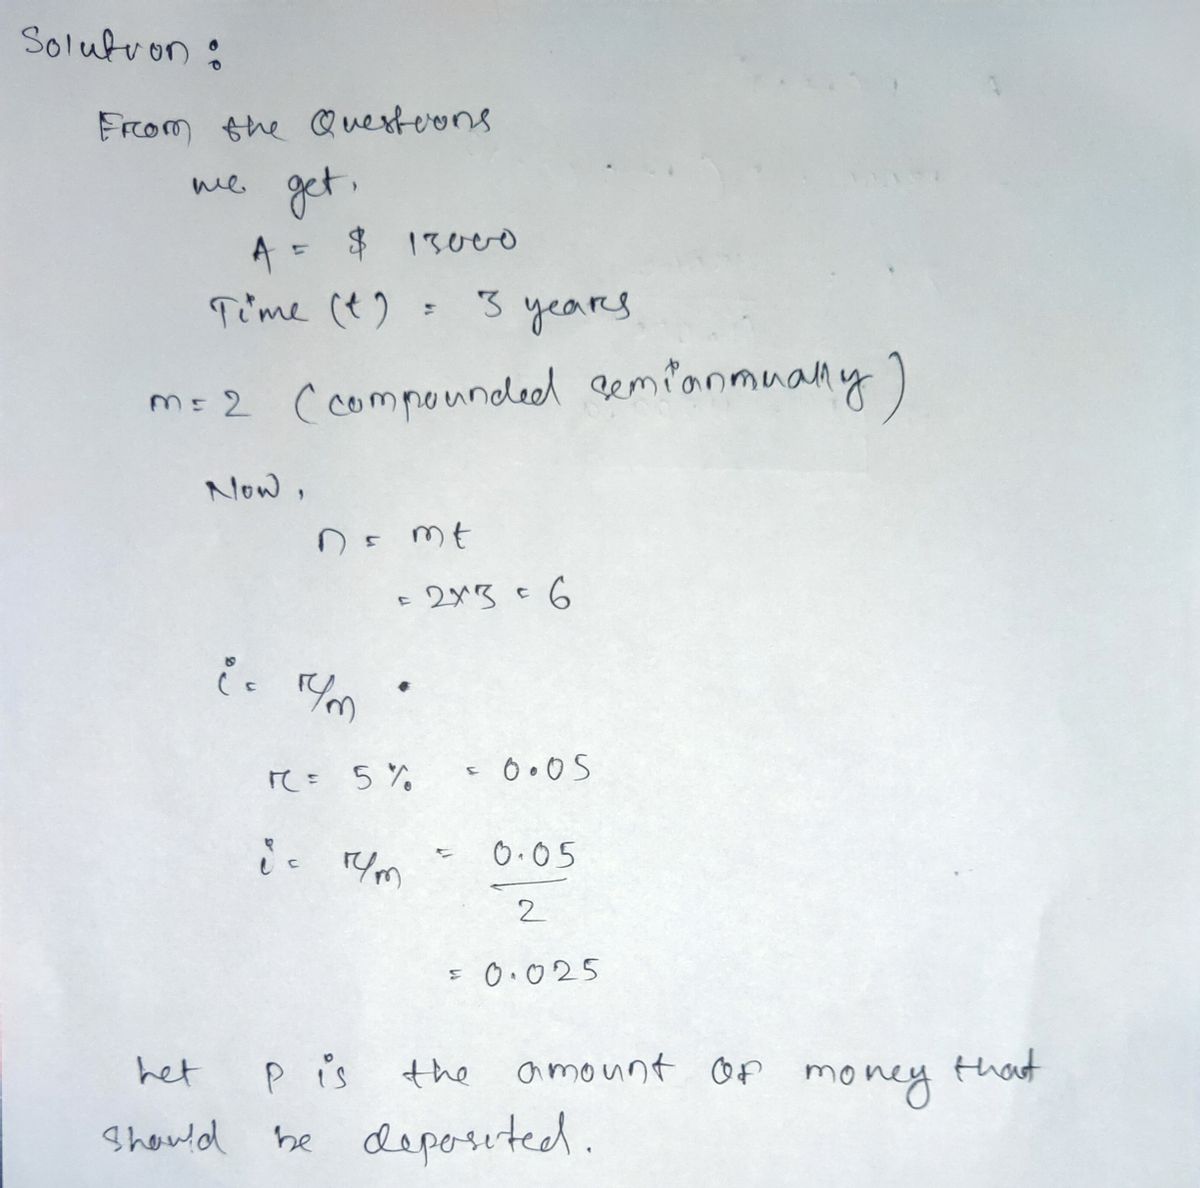 Solution :
From the Questions
we get,
A = $ 13000
Time (t) = 3 years
m = 2 (compounded semianmually)
Now,
n = mt
= 2×3 = 6
i = r/m
r = 5% = 0.05
i = r/m = 0.05
2
= 0.025
Let P is the amount of money that
should be deposited.